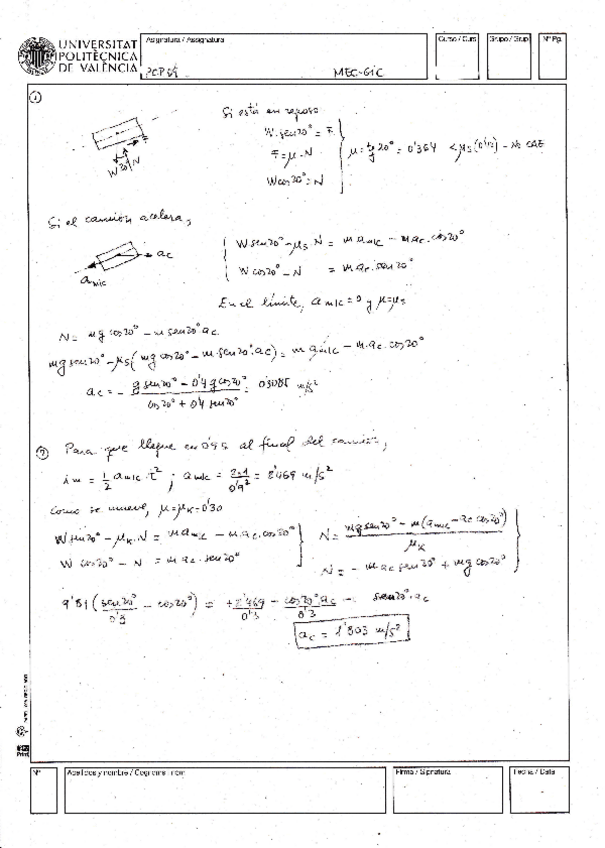 UNIVERSITAT
POLITÈCNICA
DE VALÈNCIA
Asignatura / Assignatura
MEC-GIC
Curso / Curs
Grupo / Grup
Nº Pg.
1
Si está en reposo
W sen20° = F
F = μ·N
W cos20° = N
μ = tg 20° = 0'364 < μs (0'40) → No CAE
W 20° N F
Si el camión acelera,
ac
am/c
W sen20° - μs·N = m am/c - m ac·cos20°
W cos20° - N = m ac·sen20°
En el límite, am/c = 0 y μ=μs
N = mg cos20° - m sen20° ac
mg sen20° - μs(mg cos20° - m·sen20°·ac) = m am/c - m·ac·cos20°
ac = - g sen20° - 0'4 g cos20° / cos20° + 0'4 sen20° = 0'3085 m/s²
2 Para que llegue en 0'9s al final del camión,
1m = 1/2 am/c·t² ; am/c = 2·1 / 0'9² = 2'469 m/s²
Como se mueve, μ=μk=0'30
W sen20° - μk·N = m am/c - m ac·cos20°
W cos20° - N = m ac·sen20°
N = mg sen20° - m(am/c - ac cos20°) / μk
N = - m ac sen20° + mg cos20°
9'81 (sen20° / 0'3 - cos20°) = +2'469 / 0'3 - cos20° ac / 0'3 - sen20°·ac
ac = 1'803 m/s²
Nº
Apellidos y nombre / Cognoms i nom
Firma / Signatura
Fecha / Data